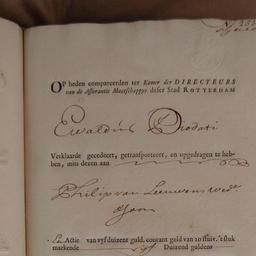 OP heden compareerden ter Kamer der DIRECTEURS
van de Assurantie Maatschappye deser Stad ROTTERDAM
Ewaldús Diodati
Verklaarde gecedeert, getransporteert, en opgedragen te heb-
ben, mits dezen aan
Philip van Leeuwens wed.e
& soon
Actie van vyf duizent guld. courant geld van 20 stuiv. 't stuk
markende vyf Duizend guldens